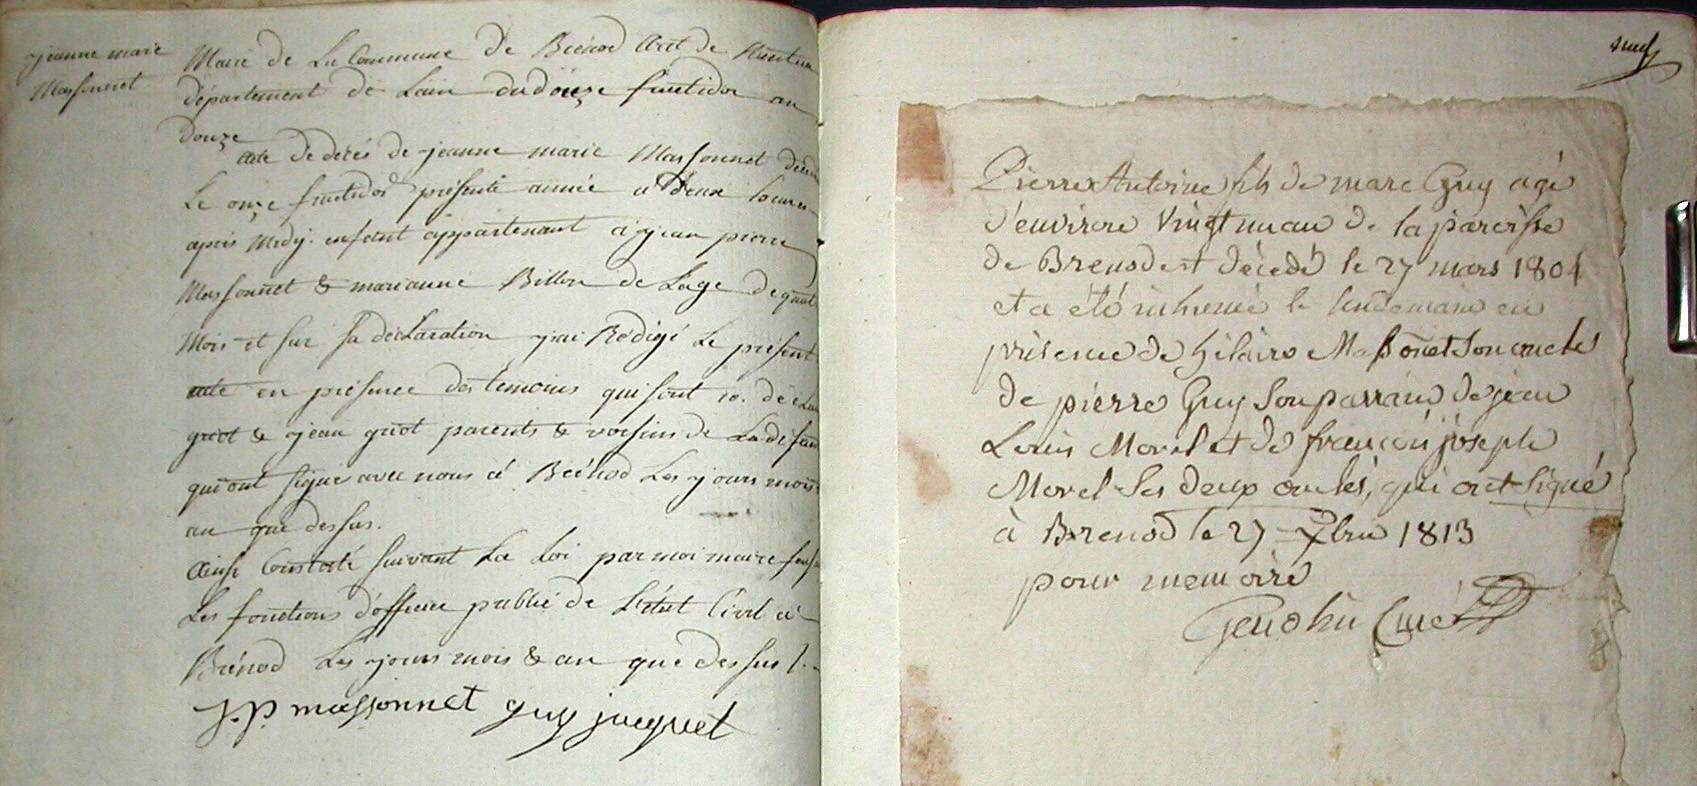 jeanne marie
Massonnet
Maire de La Commune de Brénod Arrt de Nantua
département de Lain du douze fructidor an
douze
acte de décés de jeanne marie Massonnet décédé
Le onze fructidor présente année a deux heures
après Midy. enfant appartenant à jean pierre
Massonnet & marianne Billion de Lage de quatre
Mois et sur sa déclaration j'ai Rédigé Le présent
acte en présence des témoins qui sont
griot & jean griot parents & voisins de Ladé
qui ont signé avec nous à Brénod Les jours mois
an que dessus.
Ainsi Constaté suivant La Loi par moi maire
Les fonctions d'officier public de L'état Civil à
Brénod Les jours mois & an que dessus /.
J. p. massonnet guy jacquet
neuf
Pierre Antoine fils de marc Guy agé
d'environ vingt un an de la paroisse
de Brenod est décédé le 27 mars 1804
et a été inhumé le lendemain en
présence de hilaire Massonet son oncle
de pierre Guy son parrain de jean
Louis Morel et de françois joseph
Morel ses deux oncles, qui ont signé
à Brenod le 27 Xbre 1813
pour memoire
curé